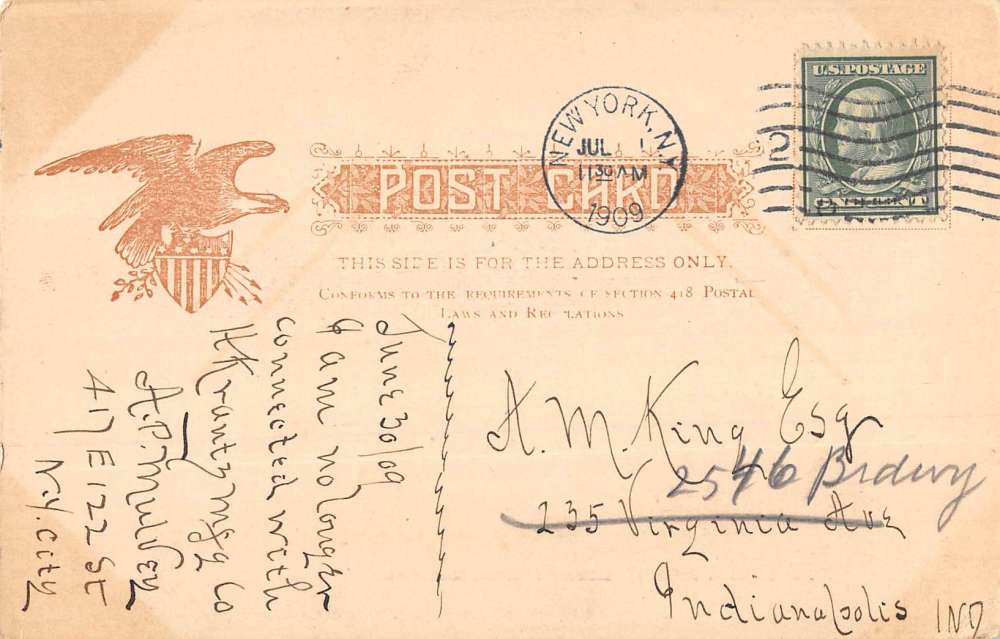 U.S.POSTAGE
NEW YORK, N.Y.
JUL 1
1130 AM
1909
2
POST CARD
THIS SIDE IS FOR THE ADDRESS ONLY.
CONFORMS TO THE REQUIREMENTS OF SECTION 418 POSTAL
LAWS AND REGULATIONS
June 30/09
I am no longer
connected with
H Krantz Mfg Co
A.P. Mulvey
417 E 122 St
N.Y. City
A. M. King Esq
2546 Brdwy
235 Virginia Ave
Indianapolis IND